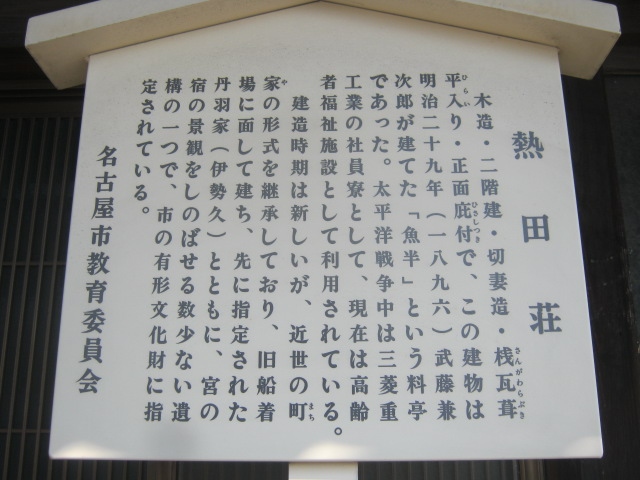 熱田荘
木造・二階建・切妻造・桟瓦葺
平入り・正面庇付で、この建物は
明治二十九年（一八九六）武藤兼
次郎が建てた「魚半」という料亭
であった。太平洋戦争中は三菱重
工業の社員寮として、現在は高齢
者福祉施設として利用されている。
建造時期は新しいが、近世の町
家の形式を継承しており、旧船着
場に面して建ち、先に指定された
丹羽家（伊勢久）とともに、宮の
宿の景観をしのばせる数少ない遺
構の一つで、市の有形文化財に指
定されている。
名古屋市教育委員会